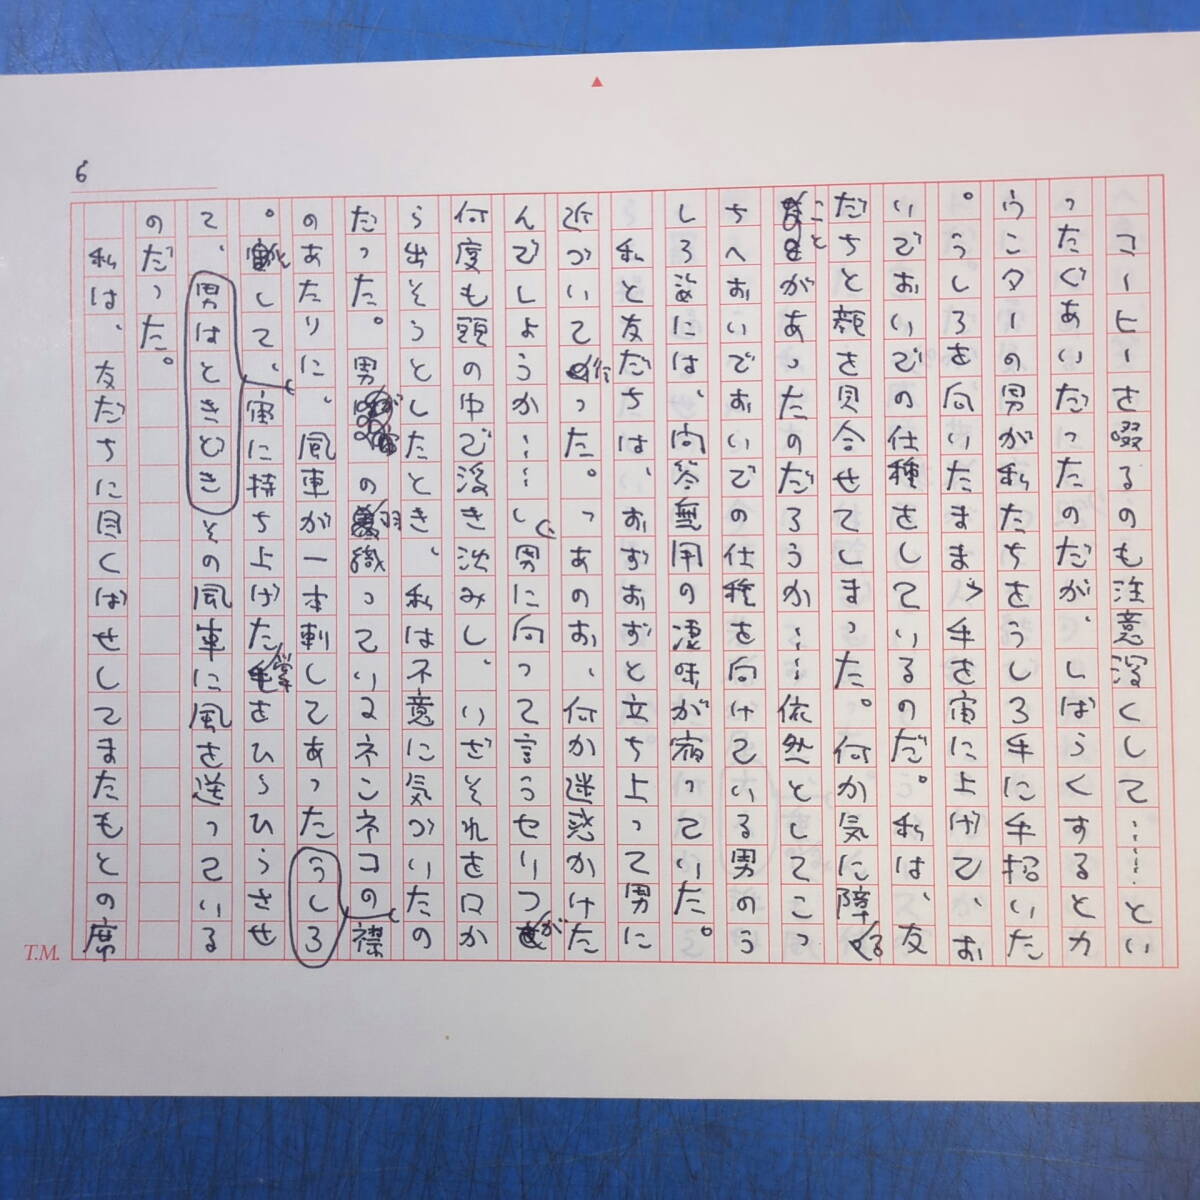 6
コーヒーを啜るのも注意深くして………とい
ったぐあいだったのだが、しばらくするとカ
ウンターの男が私たちをうしろ手に手招いた
。うしろを向いたまま、手を宙に上げて、お
いでおいでの仕種をしているのだ。私は、友
だちと顔を見合せてしまった。何か気に障る
ことがあったのだろうか……依然としてこっ
ちへおいでおいでの仕種を向けている男のう
しろ姿には、問答無用の凄味が宿っていた。
私と友だちは、おずおずと立ち上って男に
近づいて行った。「あのお、何か迷惑かけた
んでしょうか……」男に向って言うセリフが
何度も頭の中で浮き沈みし、いざそれを口か
ら出そうとしたとき、私は不意に気づいたの
だった。男の羽織っているネンネコの襟
のあたりに、風車が一本刺してあったうしろ
。そして、宙に持ち上げた掌をひらひらさせ
て、男はときどきその風車に風を送っている
のだった。
私は、友だちに目くばせしてまたもとの席
T.M.